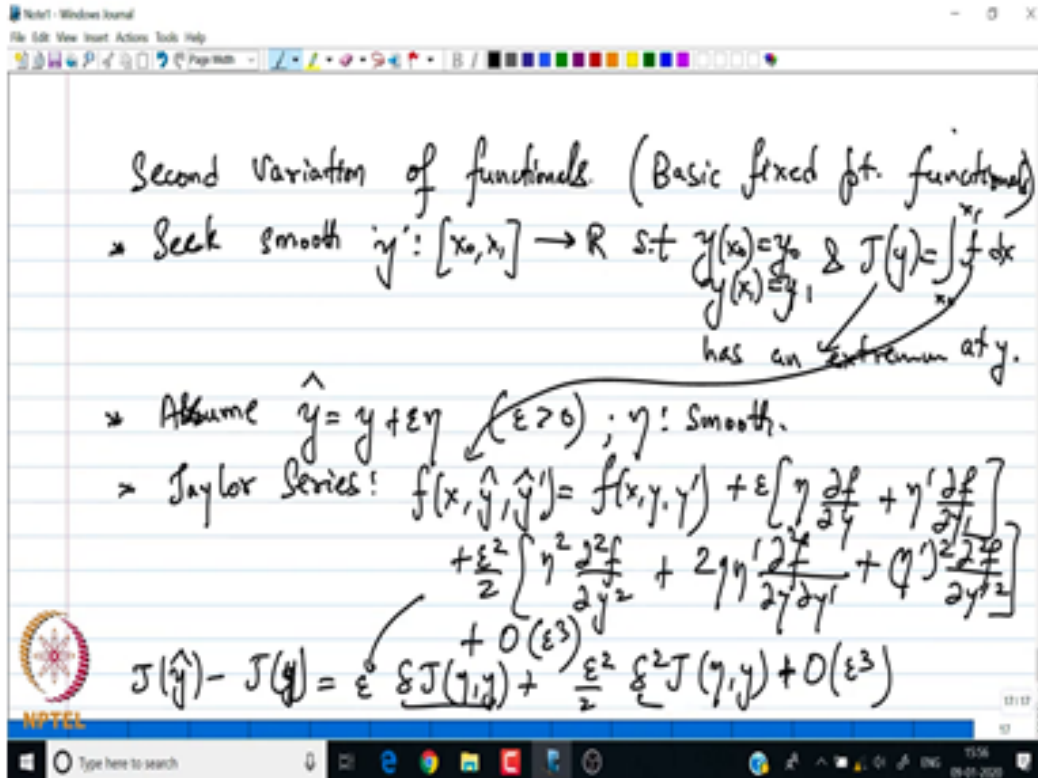 Note1 - Windows Journal
File Edit View Insert Actions Tools Help
Page Width
Second Variation of functionals (Basic fixed pt. functionals)
* Seek smooth 'y': [x₀, x₁] → R s.t y(x₀)=y₀ & J(y)=∫ₓ₀^x₁ f dx
y(x₁)=y₁
has an extremum at y.
* Assume ŷ = y + εη (ε>0) ; η: smooth.
* Taylor Series: f(x, ŷ, ŷ') = f(x, y, y') + ε[η ∂f/∂y + η' ∂f/∂y']
+ ε²/2 [η² ∂²f/∂y² + 2ηη' ∂²f/∂y∂y' + (η')² ∂²f/∂y'²]
+ O(ε³)
J(ŷ) - J(y) = ε δJ(η,y) + ε²/2 δ²J(η,y) + O(ε³)
NPTEL
17/17
17
Type here to search
ENG
15:56
09-01-2020